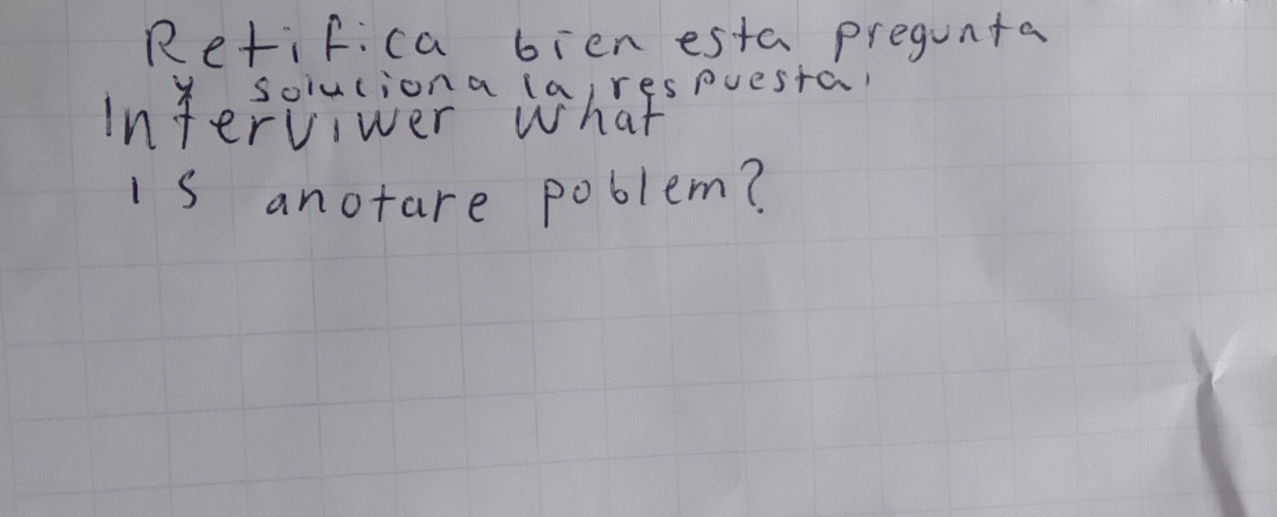 Retifica bien esta pregunta
y soluciona la respuesta,
Interviwer what
is anotare poblem?